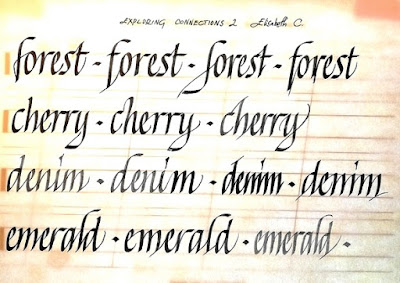 EXPLORING CONNECTIONS 2 Elisabeth C.
forest - forest - forest - forest
cherry - cherry - cherry
denim - denim - denim - denim
emerald - emerald - emerald -